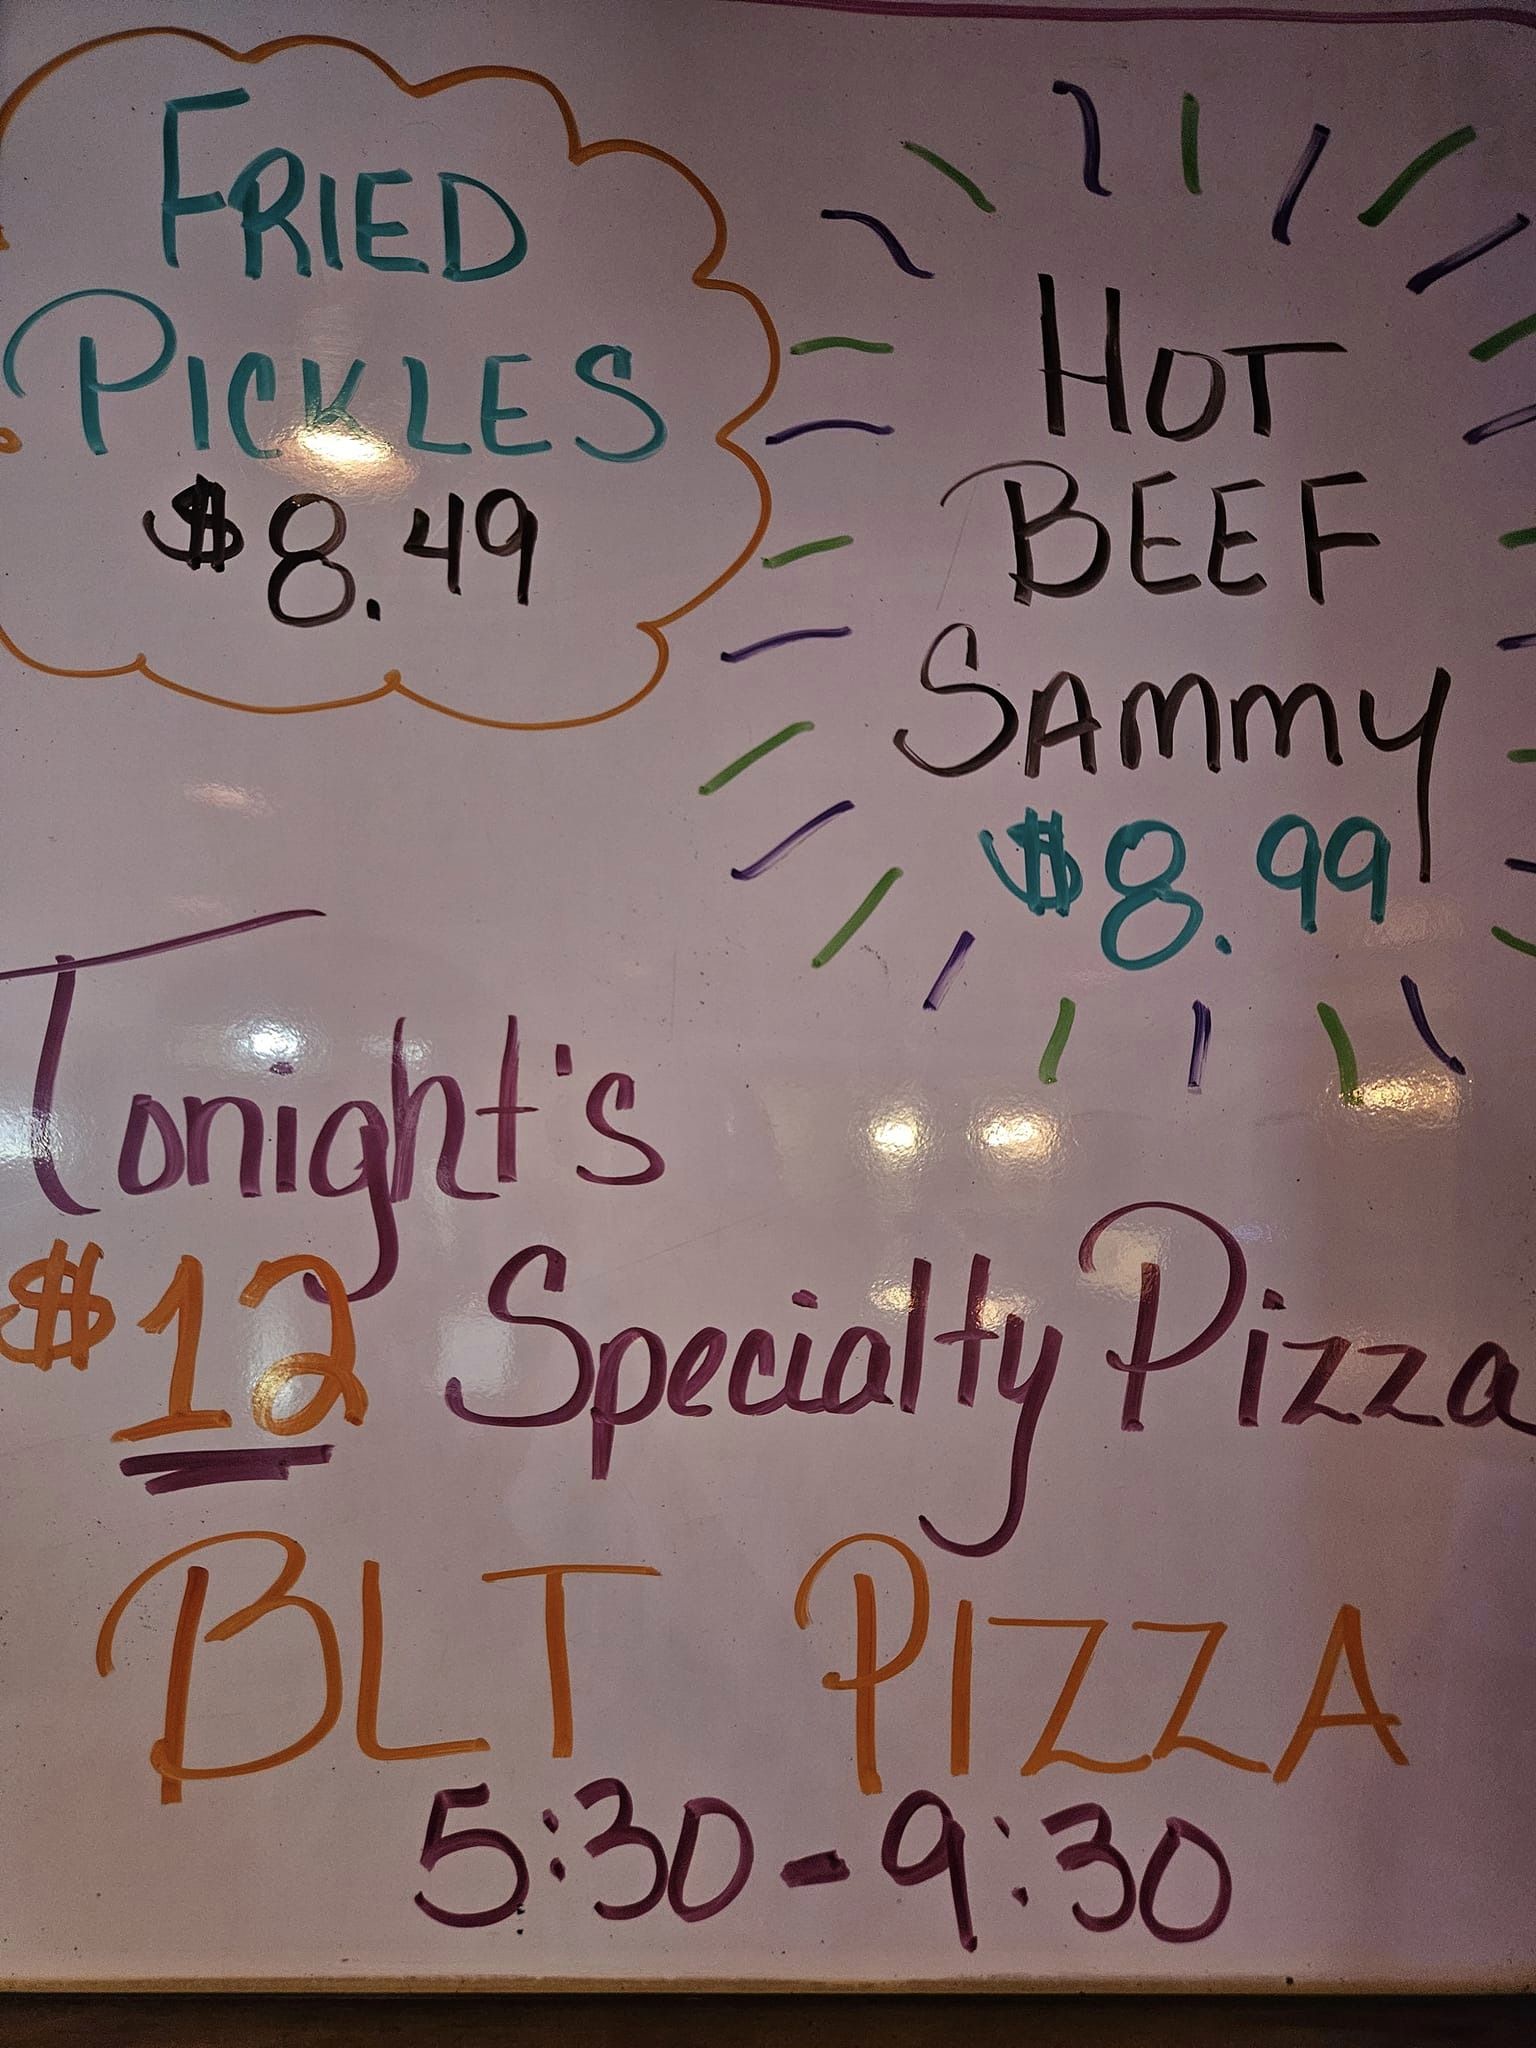 FRIED
PICKLES
$8.49
HOT
BEEF
SAMMY
$8.99
Tonight's
$12 Specialty Pizza
BLT PIZZA
5:30-9:30